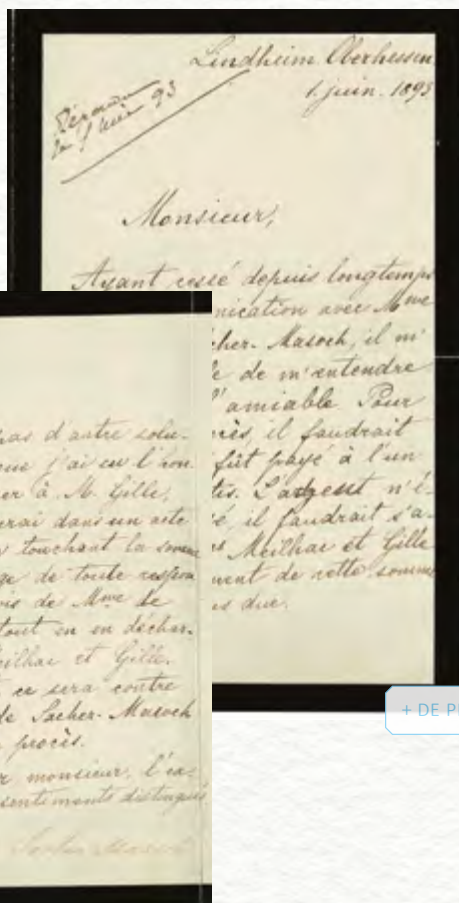 Lindheim Oberhessen
1 juin. 1893
Monsieur,
Ayant cessé depuis longtemps
nication avec Mme
cher-Masoch, il m'
de m'entendre
l'amiable. Pour
cès, il faudrait
fût payé à l'un
tis. L'argent n'é-
é, il faudrait s'a-
Meilhac et Gille
ment de cette somme
s due.
pas d'autre solu-
que j'ai eu l'hon-
er à M. Gille,
erai dans un acte
s touchant la somme
ge de toute respon
vis de Mme de
tout en en déchar-
eilhac et Gille.
ce sera contre
de Sacher-Masoch
procès.
r monsieur, l'ex-
sentiments distingués
Sacher-Masoch
+ DE P